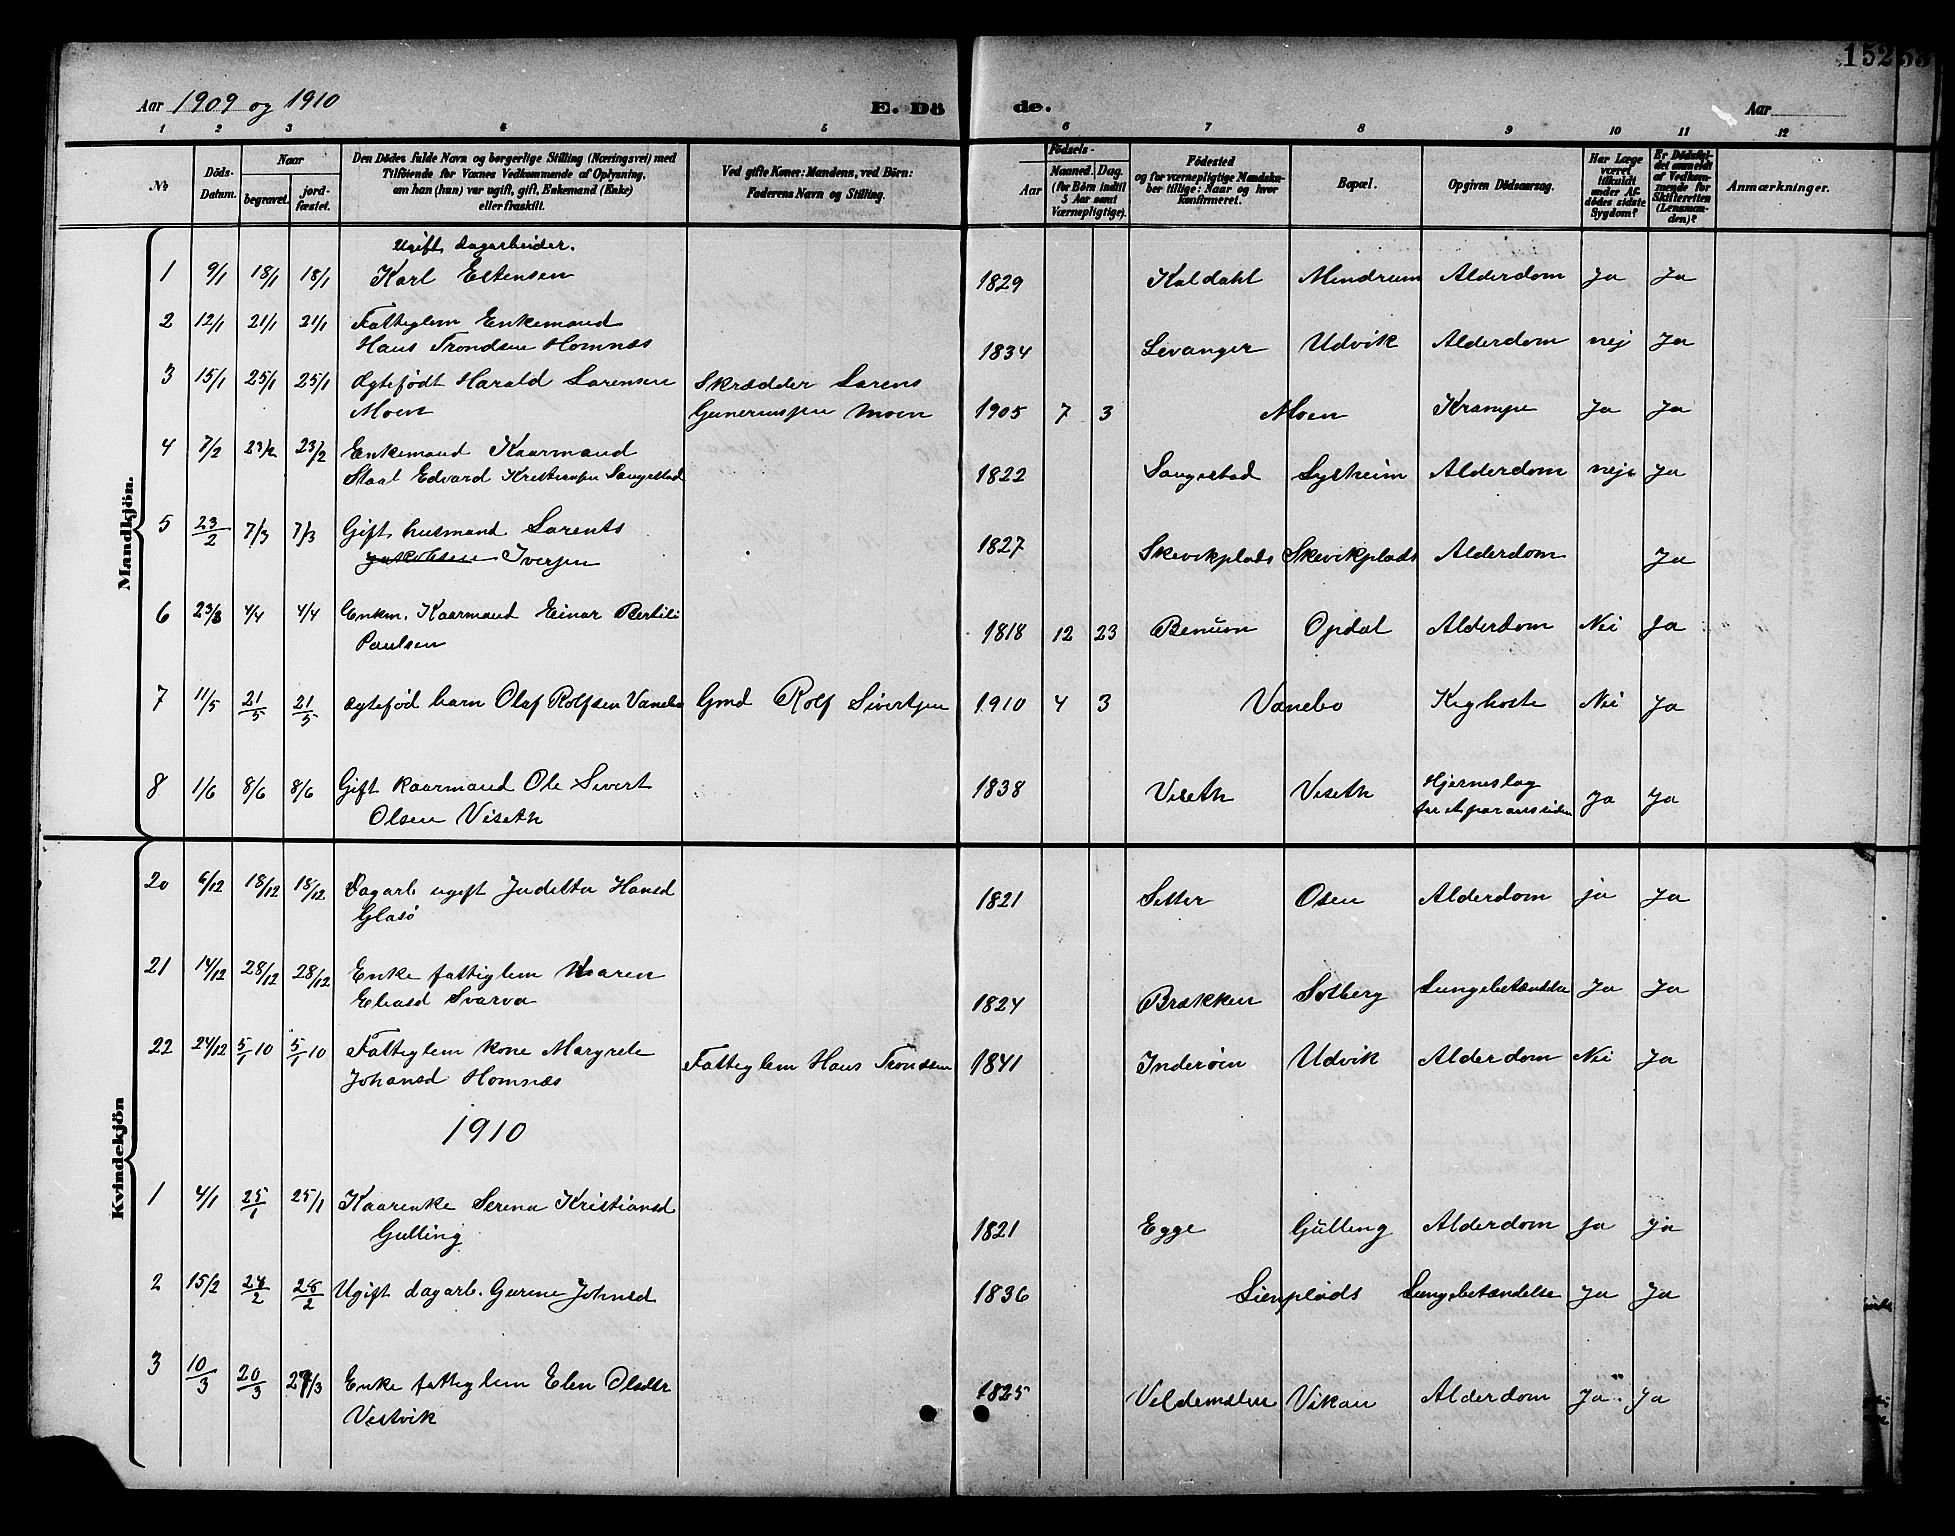 152
Aar 1909 og 1910 E. Dö de. Aar
1 2 3 4 5 6 7 8 9 10 11 12
No
Döds-Datum.
Naar
begravet.
jord-fæstet.
Den Dödes fulde Navn og borgerlige Stilling (Næringsvei) med
Tilföiende for Voxnes Vedkommende af Oplysning,
om han (hun) var ugift, gift, Enkemand (Enke)
eller fraskilt.
Ved gifte Koner: Mandens, ved Börn:
Faderens Navn og Stilling.
Födsels-
Aar
Maaned. Dag.
(for Börn indtil
5 Aar samt
Værnepligtige).
Födested
og for værnepligtige Mandska-
ber tillige: Naar og hvor
konfirmeret.
Bopæl.
Opgiven Dödsaarsag.
Har Læge
været
tilkaldt
under Af-
dödes sidste
Sygdom?
Er Dödsfal-
det anmeldt
af Vedkom-
mende for
Skifteretten
(Lensman-
den)?
Anmærkninger.
Mandkjön.
Ugift dagarbeider.
1 9/1 18/1 18/1 Karl Estensen 1829 Kaldahl Mindrum Alderdom Ja Ja
2 12/1 21/1 21/1 Fattiglem Enkemand
Hans Trondsen Homnæs 1834 Levanger Udvik Alderdom nej Ja
3 15/1 25/1 25/1 Ægtefødt Harald Lorensen Skrædder Lorens
Moen Guneriussen Moen 1905 7 3 Moen Krampe Ja Ja
4 7/2 23/2 23/2 Enkemand Kaarmand
Staal Edvard Kristiansen Saugestad 1822 Saugestad Lysheim Alderdom nej Ja
5 23/2 7/3 7/3 Gift husmand Lorents
Jakobsen Iversen 1827 Skevikplads Skevikplads Alderdom Ja
6 23/3 4/4 4/4 Enkm. Kaarmand Einar Bertil
Paulsen 1818 12 23 Benum Opdal Alderdom Nei Ja
7 11/5 21/5 21/5 Ægtefød barn Olaf Rolfsen Vanebo Gmd Rolf Sivertsen 1910 4 3 Vanebo Kighoste Nei Ja
8 1/6 8/6 8/6 Gift kaarmand Ole Sivert
Olsen Viseth 1838 Viseth Viseth Hjerneslag
for et par aar siden Ja Ja
Kvindekjön
20 6/12 18/12 18/12 Dagarb. ugift Judelta Hansd
Glasø 1821 Setter Osen Alderdom ja Ja
21 14/12 28/12 28/12 Enke fattiglem Maren
Eliasd Svarva 1824 Brækken Solberg Lungebetændelse Ja Ja
22 24/12 5/1 10 5/1 10 Fattiglem kone Margrete Fattiglem Hans Trondsen
Johansd Homnæs 1841 Inderøin Udvik Alderdom Nei Ja
1910
1 4/1 25/1 25/1 Kaarenke Serena Kristiansd
Gulling 1821 Egge Gulling Alderdom Ja Ja
2 15/2 28/2 28/2 Ugift dagarb. Gurine Johnsd 1836 Lienplads Lungebetændelse Ja Ja
3 10/3 20/3 /3 Enke fattiglem Elen Olsdtr
Vestvik 1825 Veldemelen Vikan Alderdom Ja Ja